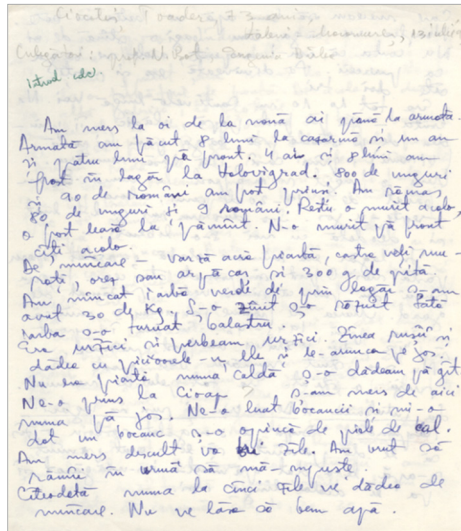 Introd. calc
Am mers la oi de la nouă ai până la armată.
Armată am făcut 8 luni la cazarmă și un an
și patru luni pă front. 4 ani și 8 luni am
fost în lagăr la Helovigrad. 800 de unguri
și 90 de români am fost prinși. Am rămas
80 de unguri și 9 români. Restu o murit acolo,
o fost leasă la pământ. N-o murit pă front
câți acolo.
De mâncare – varză acră fiartă, castraveți mu-
rați, orez sau arpăcaș și 300 g de pită.
Am mâncat iarbă verde de prin lagăr ș-am
avut 30 de Kg. S-o
iarba s-o turnat balastru.
Era urzici și fierbeam urzici. Zinea rușii și
dădea cu picioarele-n ele și le-arunca pă jos.
Nu era fiartă numa caldă ș-o dădeam pă gât
Ne-o prins la Cioap ș-am mers de aici
numa pă jos. Ne-o luat bocancii și mi-o
dat un bocanc ș-o opincă de piele de cal.
Am mers desculț vo tri zile. Am vrut să
rămâi în urmă să mă-mpuște.
Câteodată numa la cinci zile ne dădea de
mâncare. Nu ne lăsa să bem apă.